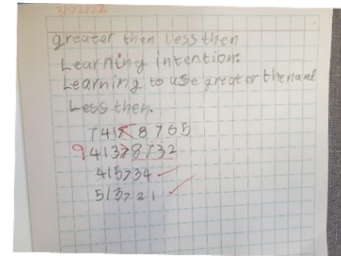 3/02/22
greater then less then
Learning intention:
Learning to use greater then and
Less then.
741<8765
9413>8732
415>34
513>21